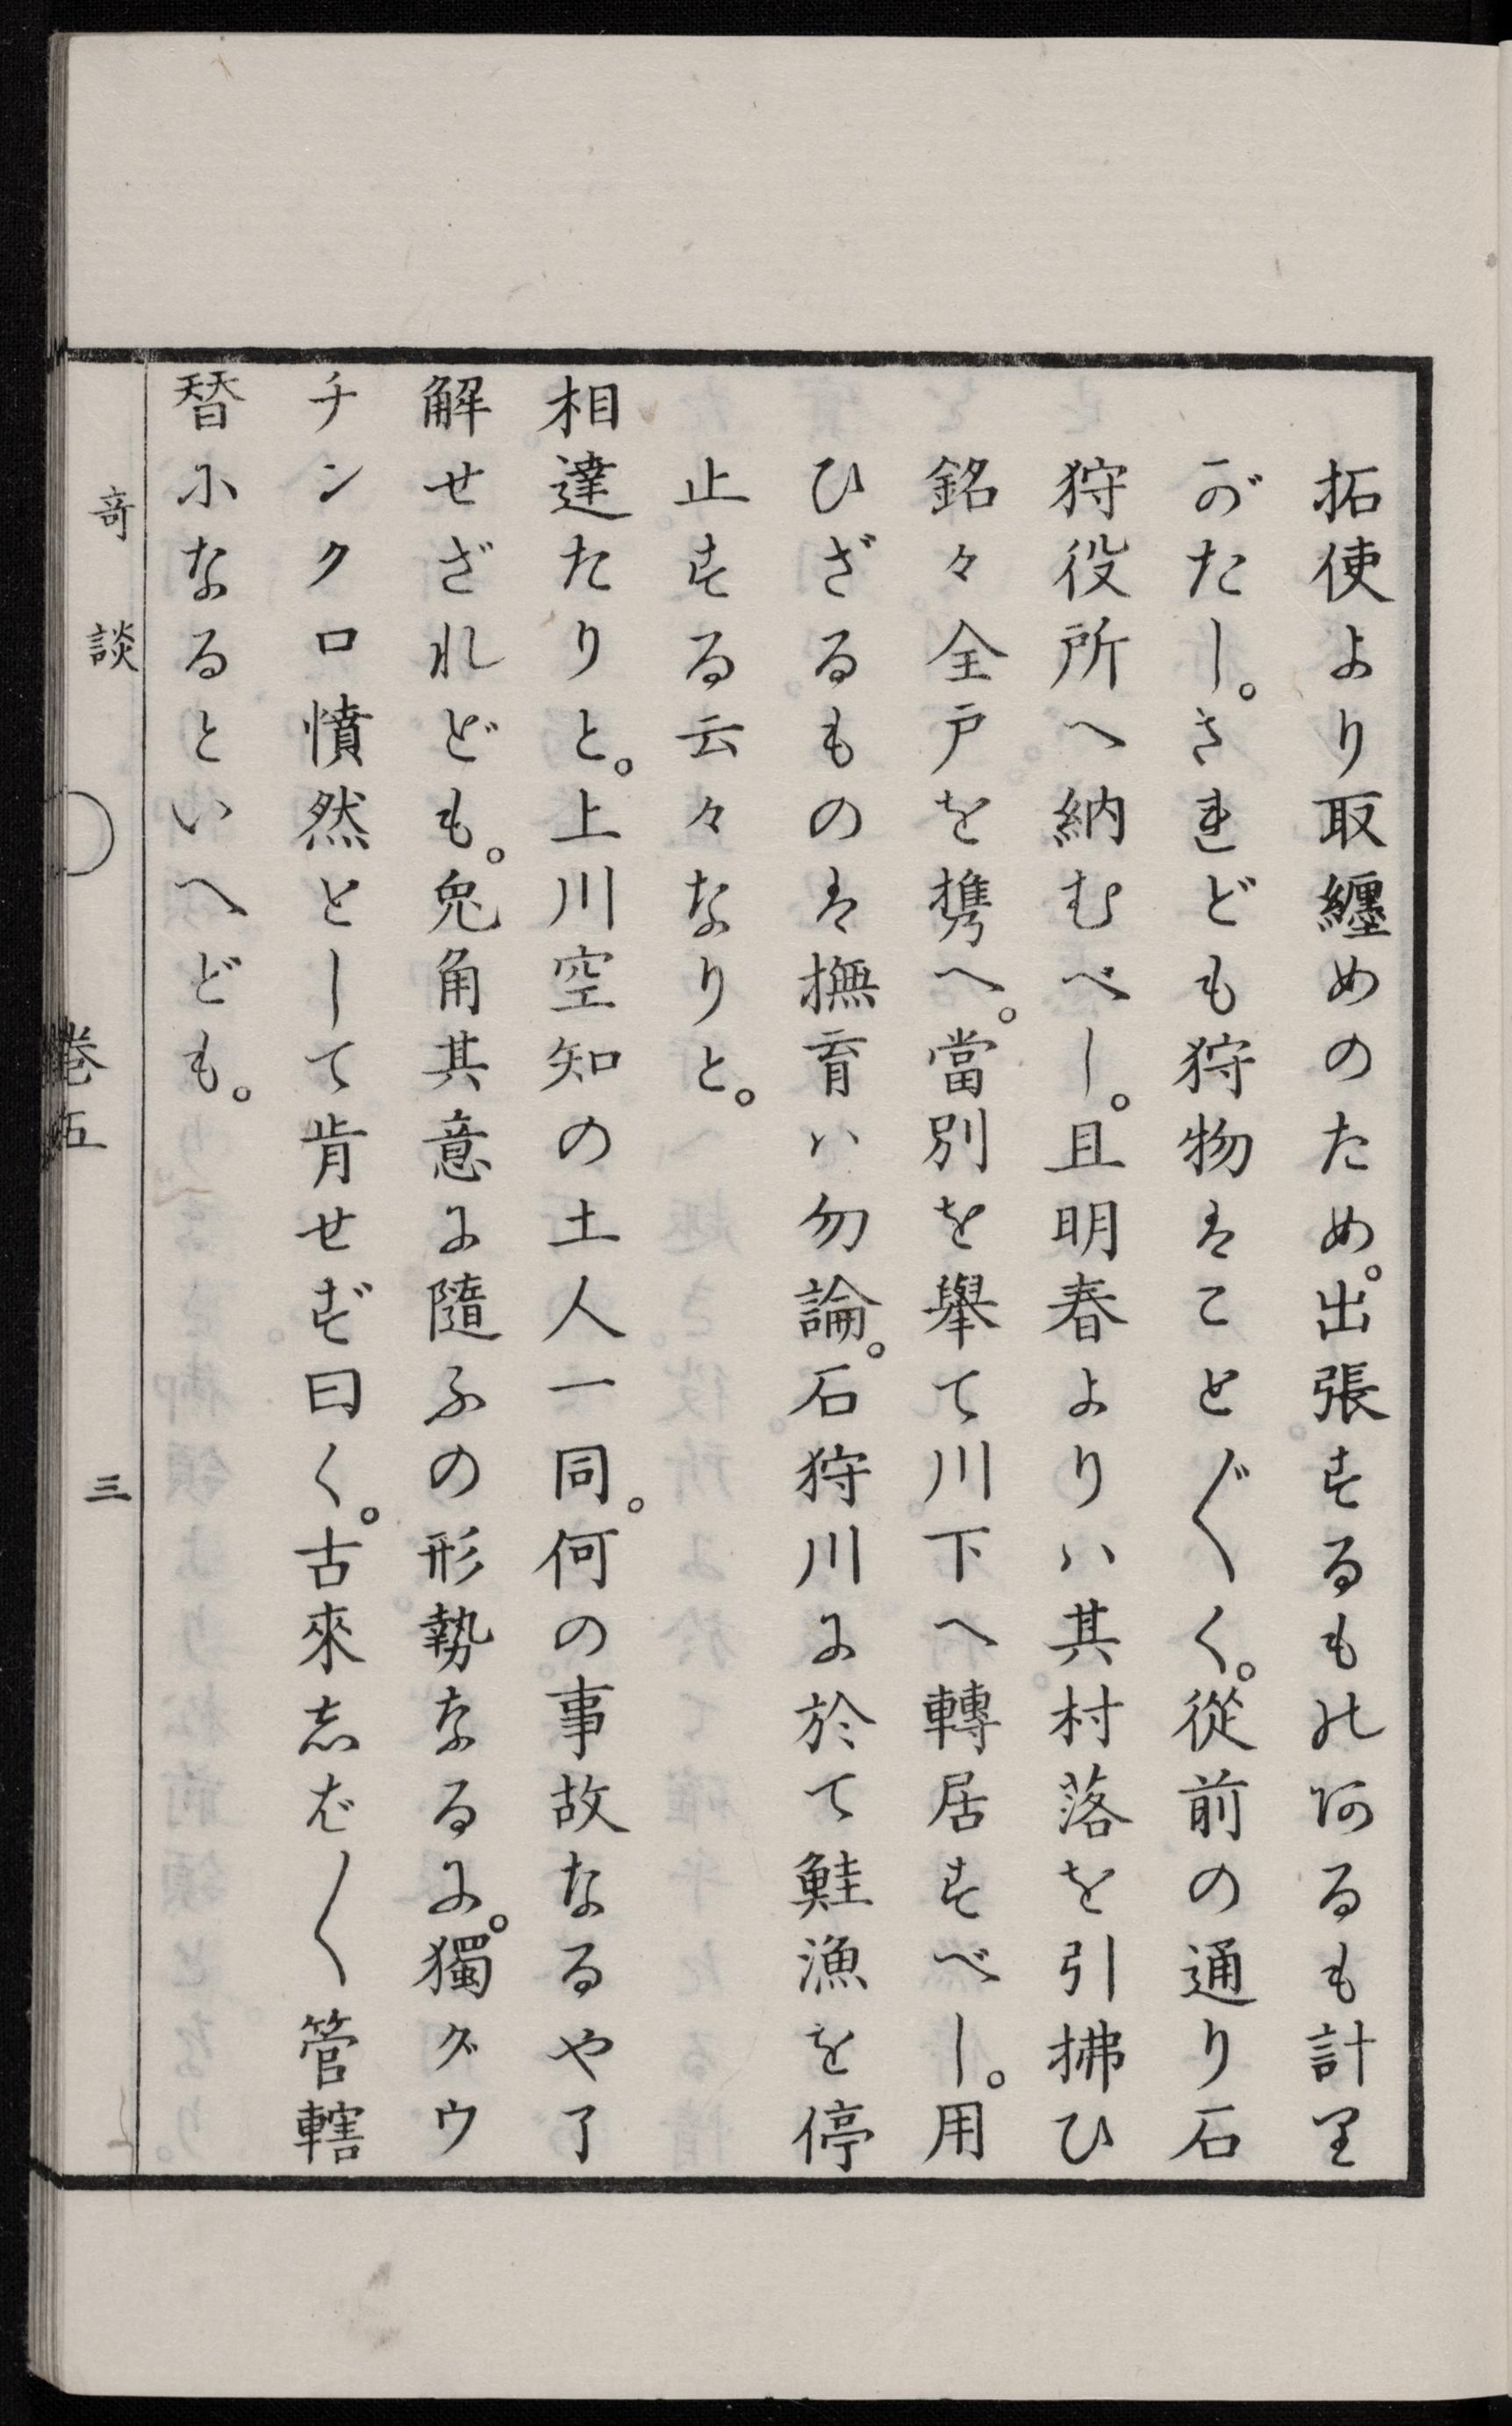 拓使より取纏めのため。出張するものあるも計り
がたし。されども狩物はこと〴〵く。從前の通り石
狩役所へ納むべし。且明春よりハ其村落を引拂ひ
銘々全戸を携へ。當別を擧て川下へ轉居すべし。用
ひざるものは撫育ハ勿論。石狩川に於て鮭漁を停
止する云々なりと。
相達たりと。上川空知の土人一同。何の事故なるや了
解せざれども。兎角其意に隨ふの形勢なるに。獨グウ
チンクロ憤然として肯せず曰く。古來しば〱管轄
替になるといへども。
奇談 卷五 三